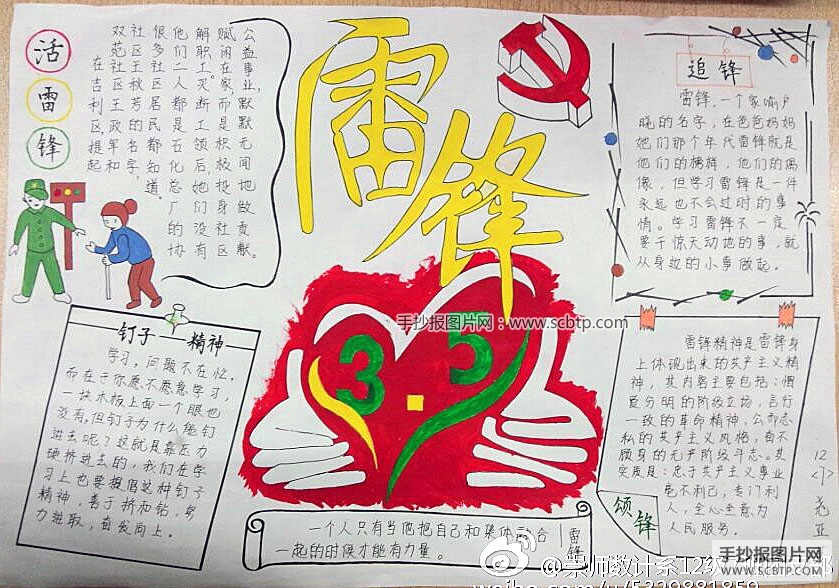 活
雷
锋
在吉利区提起
双苑社区王政军和
社区王秋芳的名字,
很多社区居民都知道。
他们二人都是石化总厂的协
解职工。买断工领后她们没有
赋闲在家,而是积极投身社区
公益事业,默默无闻地做贡献。
雷锋
3.5
手抄报图片网:www.scbtp.com
追锋
雷锋,一个家喻户
晓的名字,在爸爸妈妈
她们那个年代雷锋就是
他们的榜样,他们的偶
像,但学习雷锋是一件
永远也不会过时的事
情。学习雷锋不一定
要干惊天动地的事,就
从身边的小事做起。
钉子精神
学习,问题不在忙,
而在于你愿不愿意学习,
一块木板上面一个眼也
没有,但钉子为什么能钉
进去呢?这就是靠压力
硬挤进去的,我们在学
习上也要提倡这种钉子
精神,善于挤和钻,努
力进取,奋发向上。
雷锋精神是雷锋身
上体现出来的共产主义精
神,其内容主要包括:憎
爱分明的阶级立场,言行
一致的革命精神,公而忘
私的共产主义风格,奋不
顾身的无产阶级斗志。其
实质是:忠于共产主义事业
毫不利己,专门利
人,全心全意为
人民服务。
颂锋
一个人只有当他把自己和集体融合
一起的时候才能有力量。
雷锋
手抄报图片网
WWW.SCBTP.COM